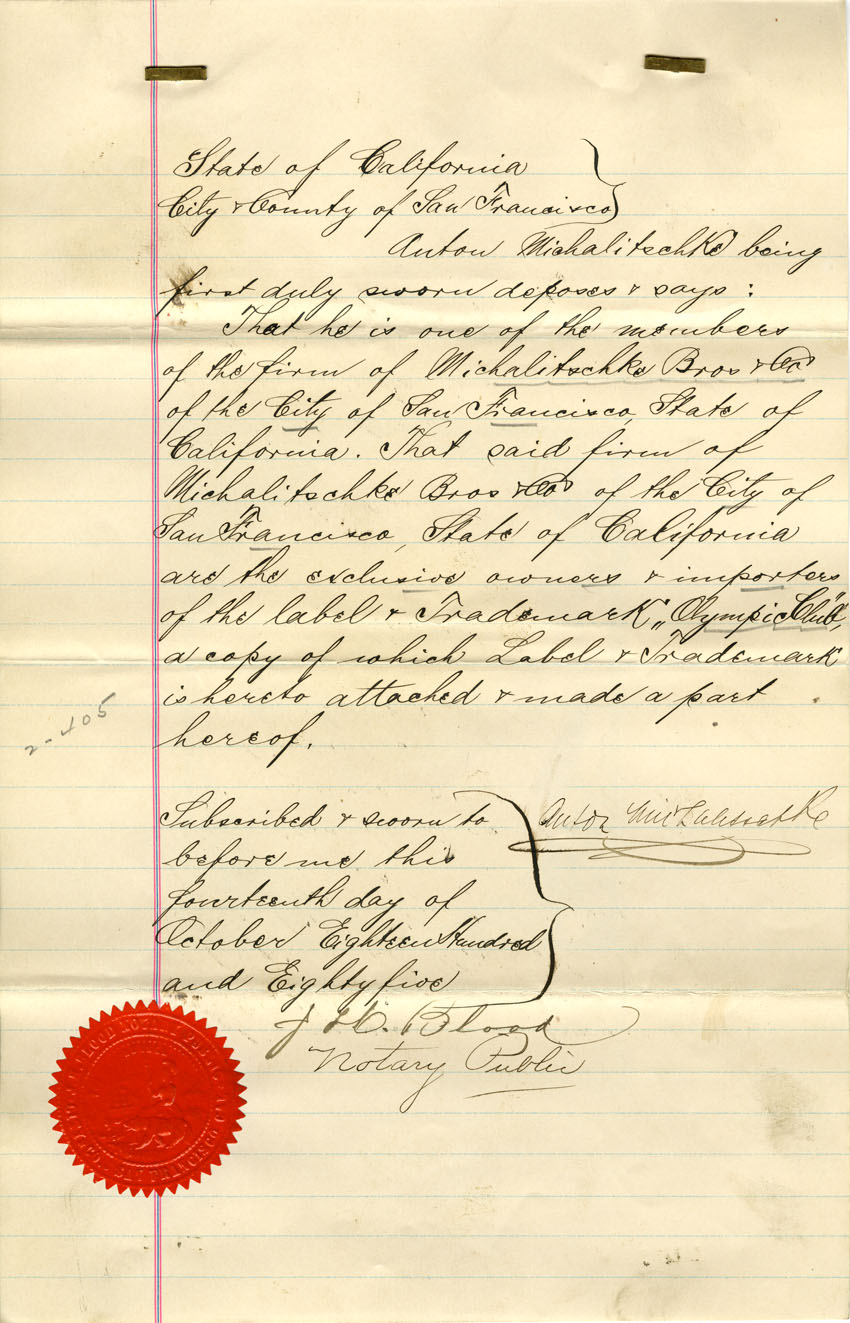 State of California
City & County of San Francisco
Anton Michalitschke being
first duly sworn deposes & says:
That he is one of the members
of the firm of Michalitschke Bros & Co
of the City of San Francisco, State of
California. That said firm of
Michalitschke Bros & Co of the City of
San Francisco, State of California
are the exclusive owners & importers
of the label & Trademark „Olympic Club",
a copy of which Label & Trademark
is hereto attached & made a part
hereof.
2-405
Subscribed & sworn to
before me this
fourteenth day of
October Eighteen Hundred
and Eighty five
Anton Michalitschke
J H. Blood
Notary Public
BLOOD NOTARY PUBLIC
SAN FRANCISCO